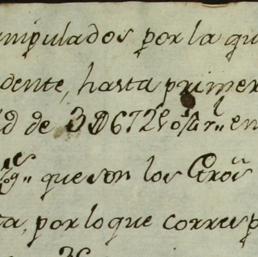 nipulados por la qu
dente, hasta primer
d de 3D672 en
que son los
ta, por lo que corresp